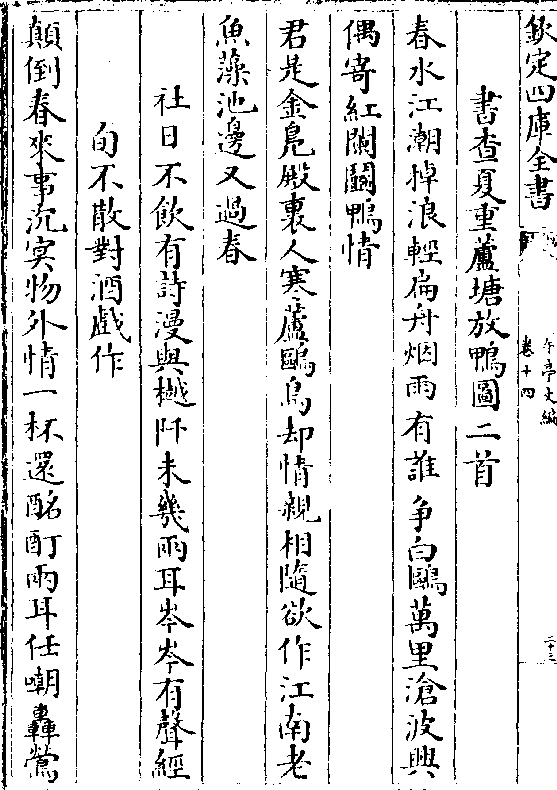 欽定四庫全書
午亭文編
卷十四
二十三
書查夏重蘆塘放鴨圖二首
春水江潮掉浪輕扁舟烟雨有誰爭白鷗萬里滄波興
偶寄紅闌鬬鴨情
君是金鳧殿裏人寒蘆鷗鳥却情親相隨欲作江南老
魚藻池邊又過春
社日不飲有詩漫與樾阡未幾兩耳岑岑有聲經
旬不散對酒戲作
顛倒春來事沉冥物外情一杯還酩酊兩耳任嘲轟鶯